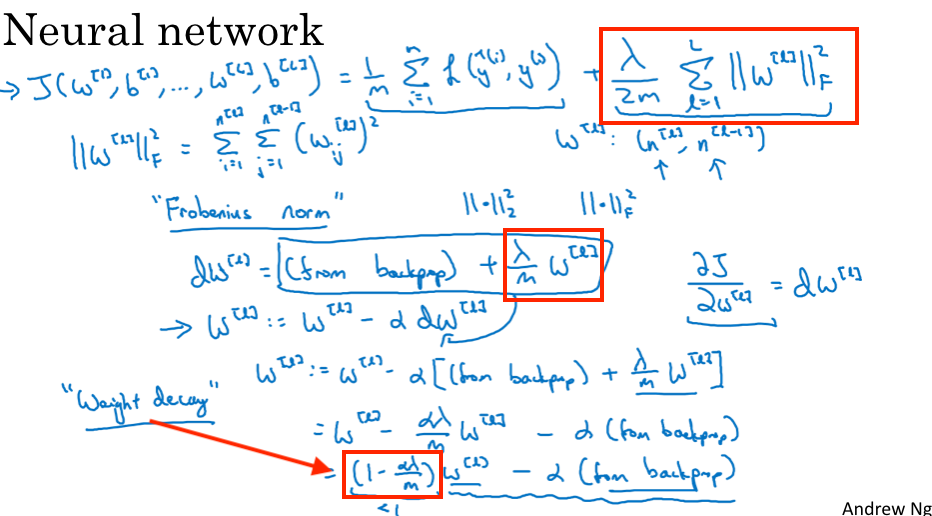 Neural network
→ J(w^[1], b^[1], ..., w^[L], b^[L]) = 1/m Σ_{i=1}^{n} L(ŷ^(i), y^(i)) + λ/2m Σ_{l=1}^{L} ||w^[l]||_F^2
||w^[l]||_F^2 = Σ_{i=1}^{n^[l]} Σ_{j=1}^{n^[l-1]} (w_ij^[l])^2    w^[l]: (n^[l], n^[l-1])
"Frobenius norm"    ||·||_2^2    ||·||_F^2
dw^[l] = (from backprop) + λ/m w^[l]    ∂J/∂w^[l] = dw^[l]
→ w^[l] := w^[l] - α dw^[l]
"Weight decay"    w^[l] := w^[l] - α[(from backprop) + λ/m w^[l]]
= w^[l] - αλ/m w^[l] - α (from backprop)
= (1 - αλ/m) w^[l] - α (from backprop)
<1
Andrew Ng